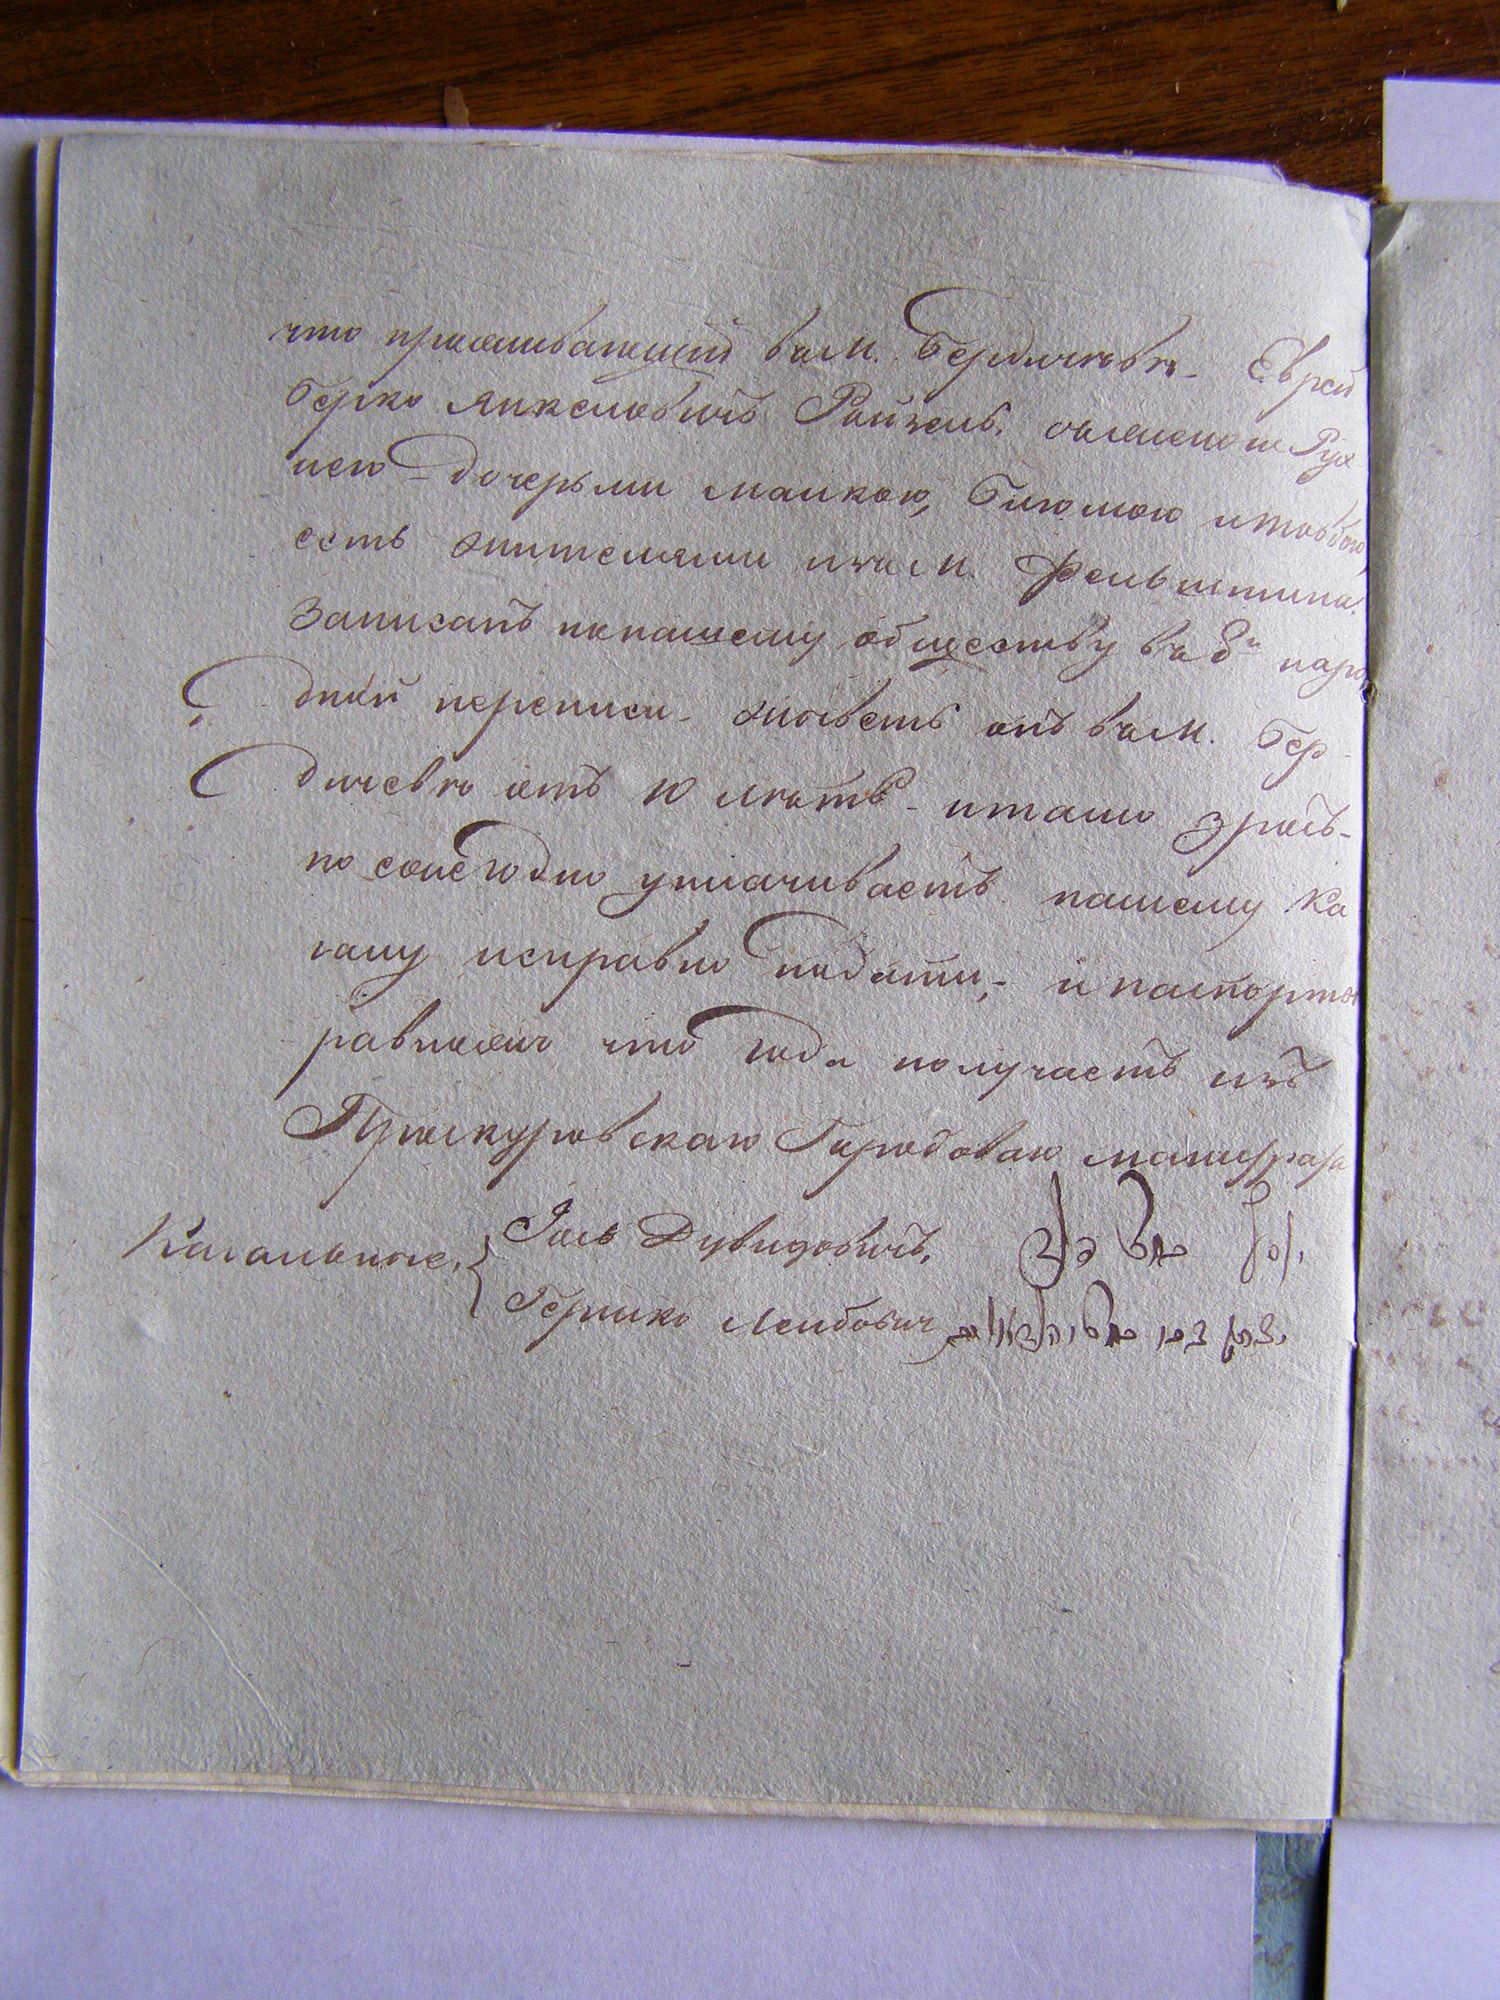 что проживающий въ м. Бердичевъ- Еврей
Берко Янкелевичъ Райзель. съ женою Рух-
лею - дочерьми маикою, Блюмою и товбою,
есть жителями изъ м. Фельштина.
Записанъ по нашему обществу въ 6й наро
дной переписи- живетъ онъ въ м. Бер-
дичевъ отъ 10 лѣтъ- и тамо
по сей годно уплачиваетъ нашему Ка
галу исправно подати,- и паспорты
равножъ что года получаетъ изъ
Проскуровскаго Городоваго магистрата
Кагальные. { Іоль Дувидовичъ.
Гершко Лейбович